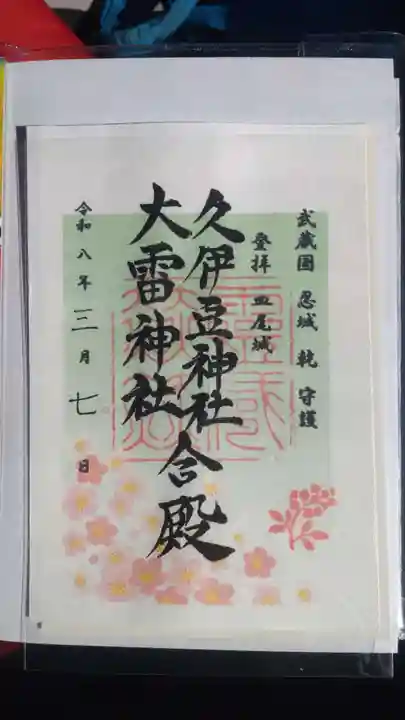 武蔵国 忍城 乾 守護
登拝 皿尾城
久伊豆神社合殿
大雷神社
令和八年三月七日